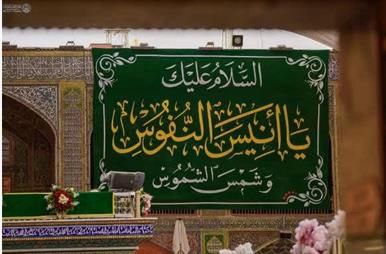 السَّلَامُ عَلَيْكَ
يَا أَنِيسَ النُّفُوسِ
وَشَمْسَ الشُّمُوسِ